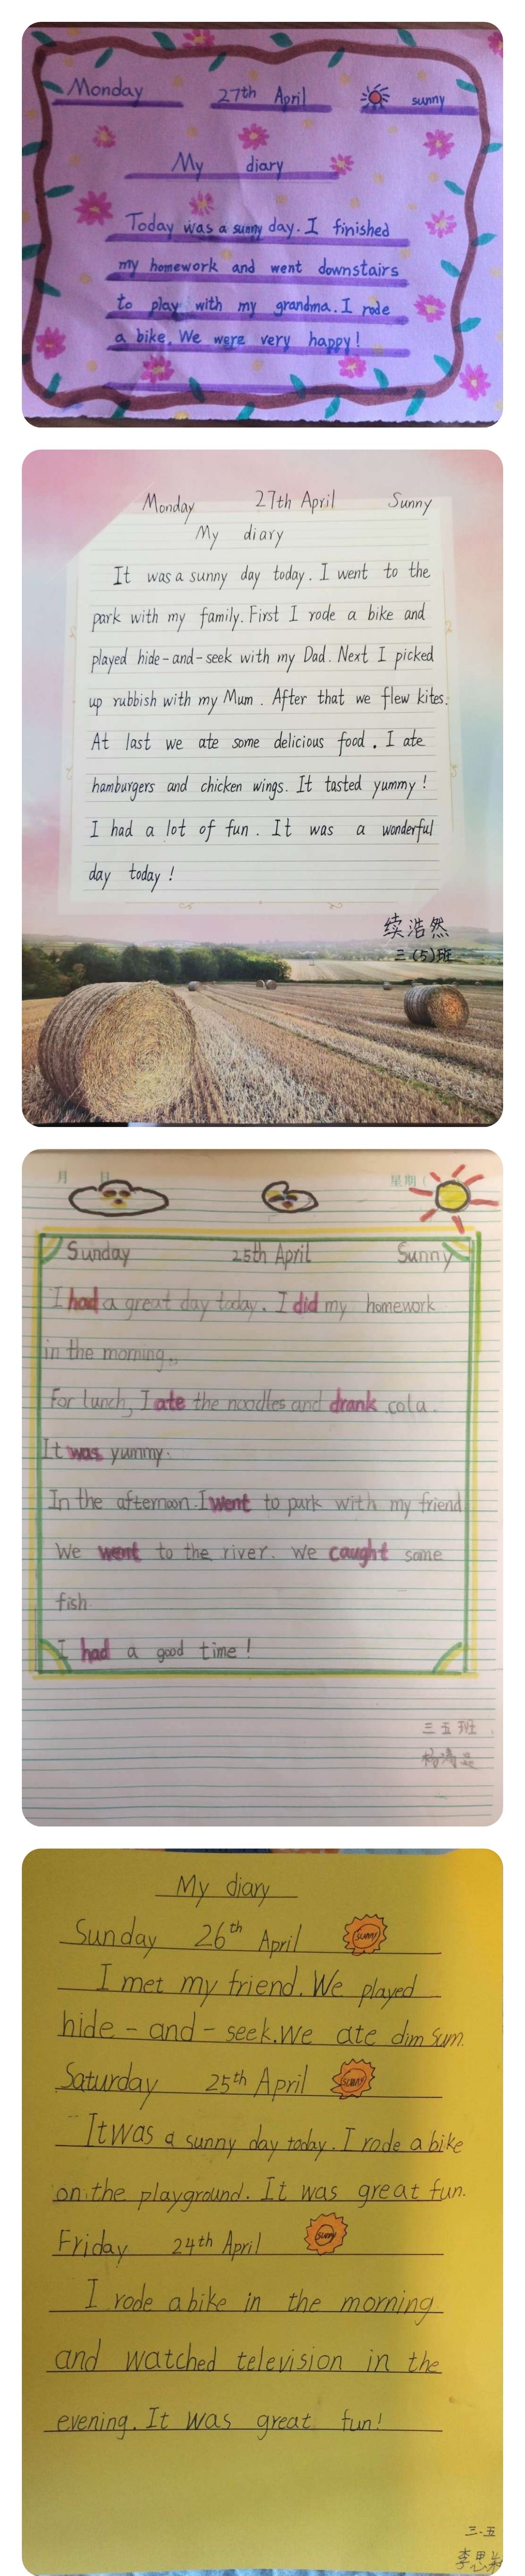 Monday 27th April sunny
My diary
Today was a sunny day. I finished
my homework and went downstairs
to play with my grandma. I rode
a bike. We were very happy!
Monday 27th April Sunny
My diary
It was a sunny day today. I went to the
park with my family. First I rode a bike and
played hide-and-seek with my Dad. Next I picked
up rubbish with my Mum. After that we flew kites.
At last we ate some delicious food. I ate
hamburgers and chicken wings. It tasted yummy!
I had a lot of fun. It was a wonderful
day today!
续浩然
三(5)班
月 日 星期(
Sunday 25th April Sunny
I had a great day today. I did my homework
in the morning.
For lunch, I ate the noodles and drank cola.
It was yummy.
In the afternoon. I went to park with my friend
We went to the river. We caught some
fish.
I had a good time!
三五班
My diary
Sunday 26th April sunny
I met my friend. We played
hide-and-seek. We ate dim sum.
Saturday 25th April sunny
It was a sunny day today. I rode a bike
on the playground. It was great fun.
Friday 24th April sunny
I rode a bike in the morning
and watched television in the
evening. It was great fun!
三.五
李思